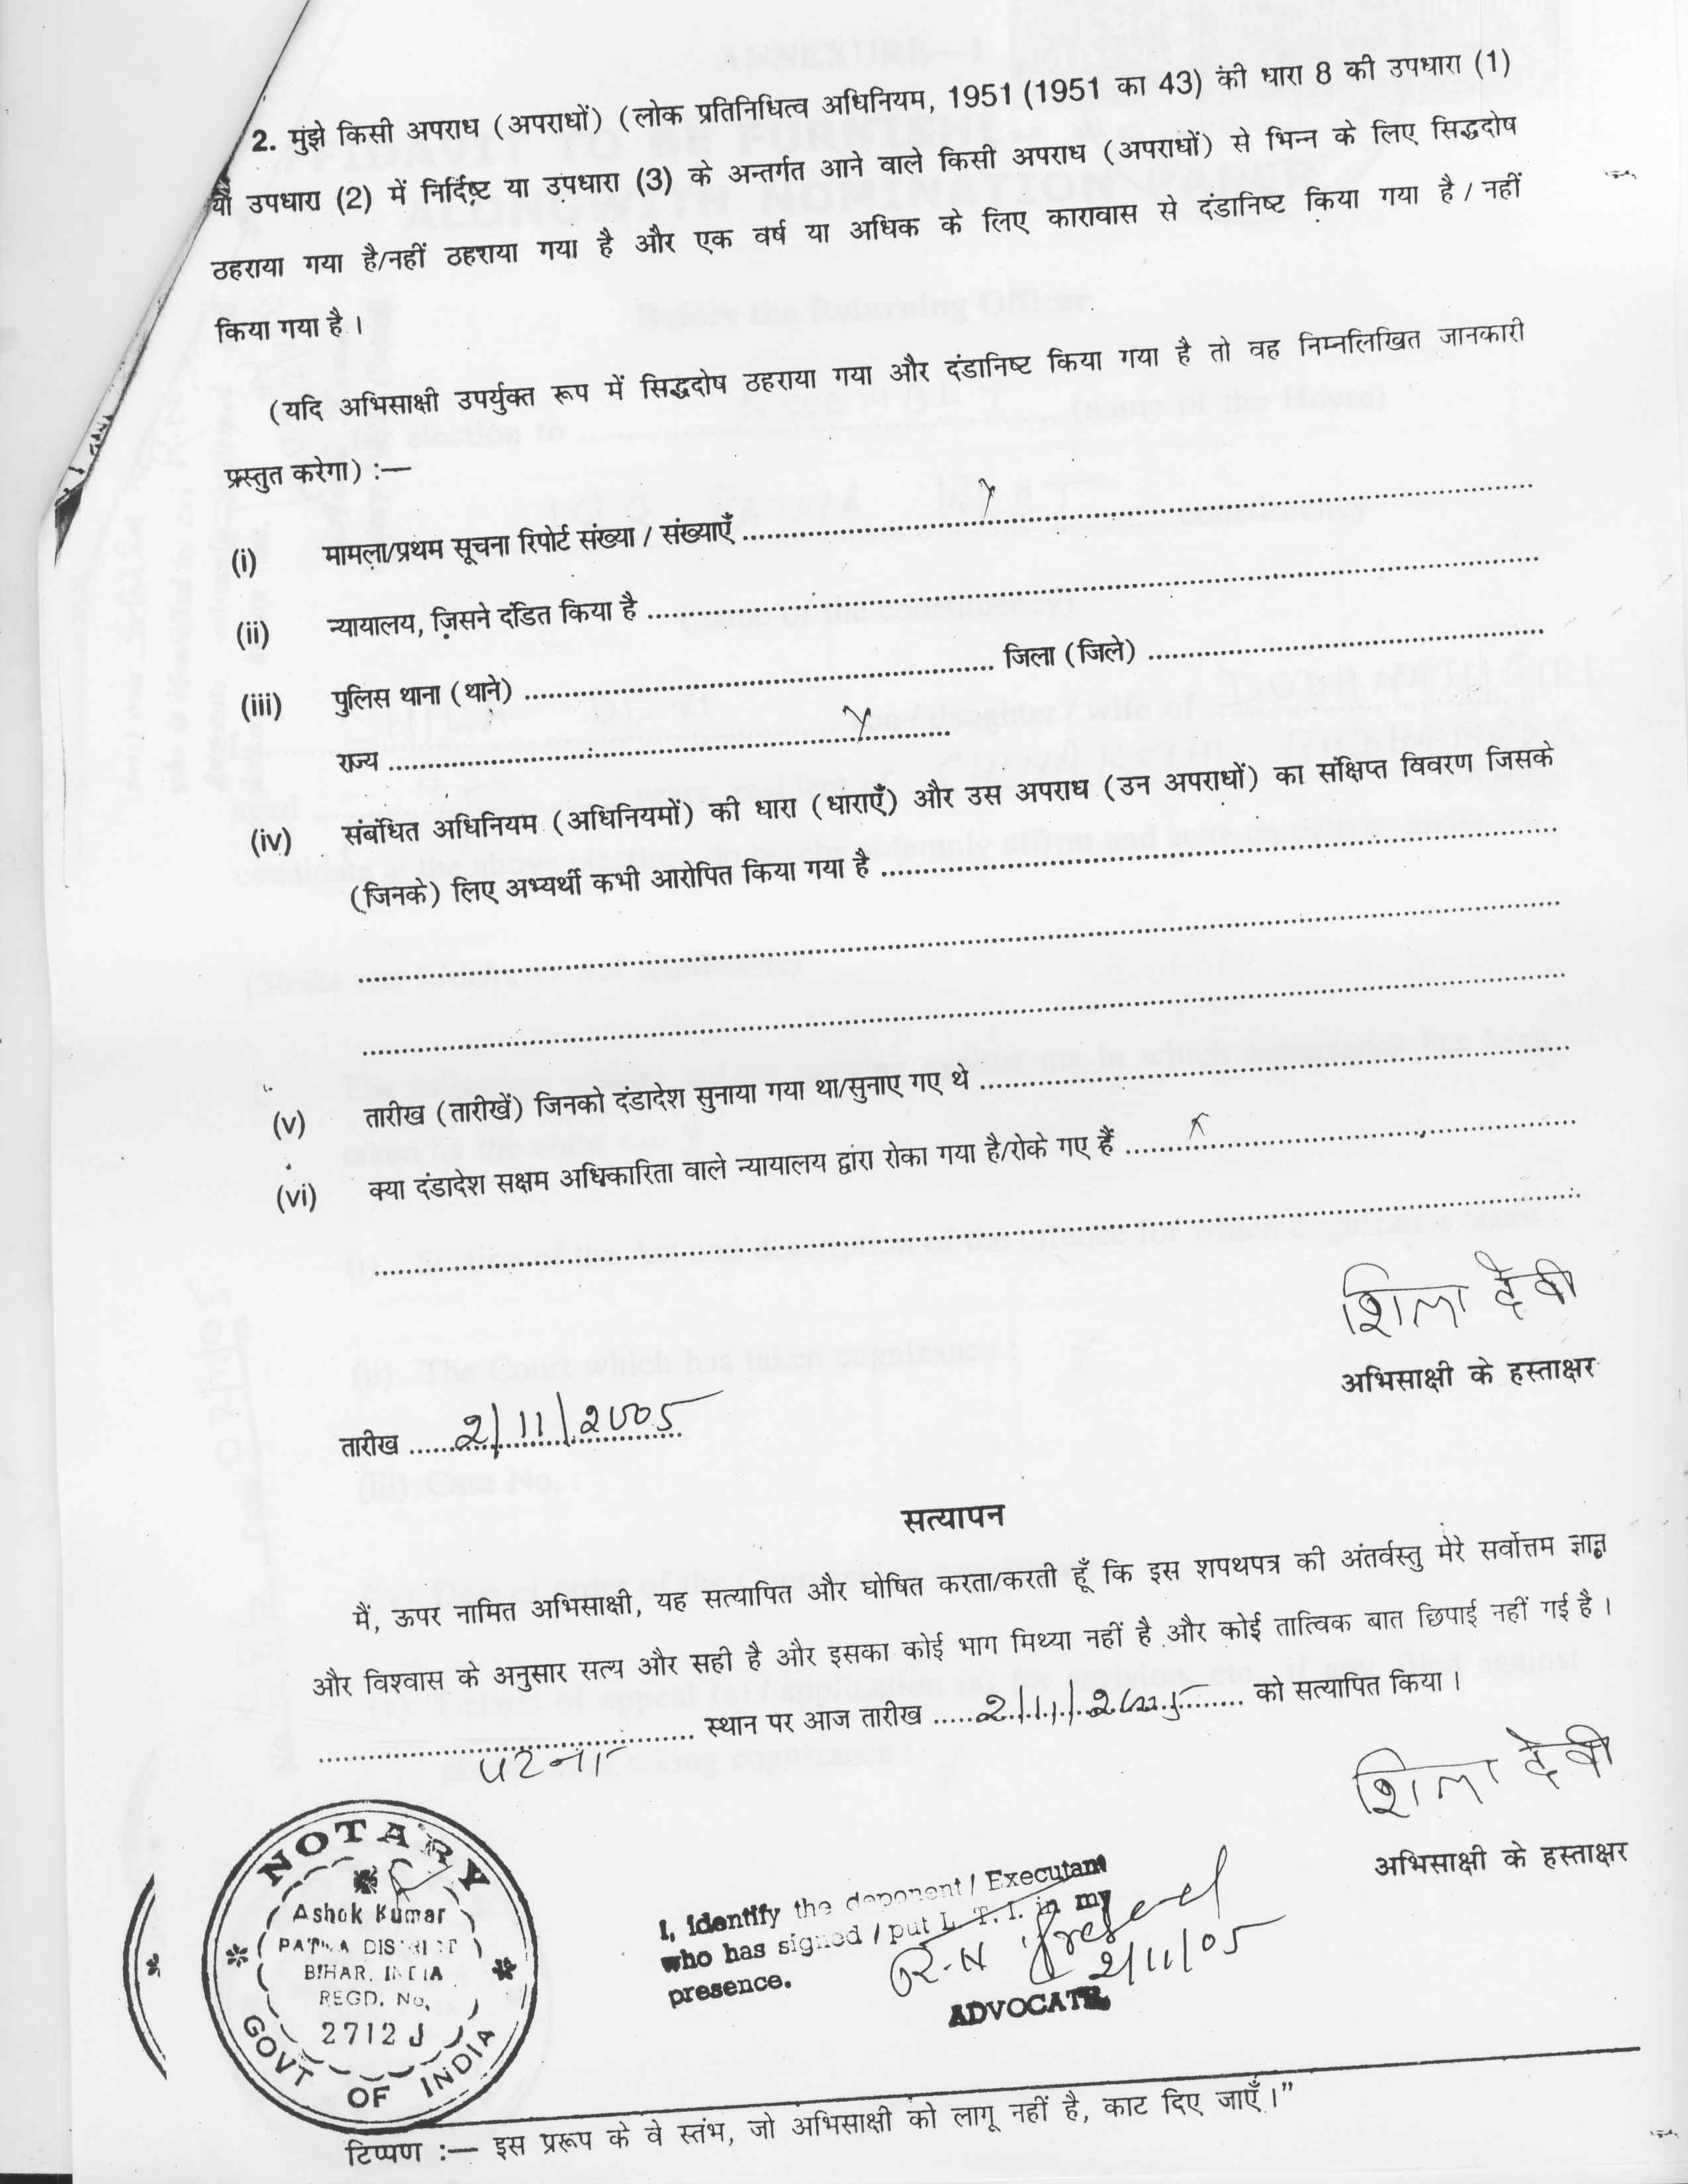 2. मुझे किसी अपराध (अपराधों) (लोक प्रतिनिधित्व अधिनियम, 1951 (1951 का 43) की धारा 8 की उपधारा (1)
या उपधारा (2) में निर्दिष्ट या उपधारा (3) के अन्तर्गत आने वाले किसी अपराध (अपराधों) से भिन्न के लिए सिद्धदोष
ठहराया गया है/नहीं ठहराया गया है और एक वर्ष या अधिक के लिए कारावास से दंडानिष्ट किया गया है / नहीं
किया गया है।
(यदि अभिसाक्षी उपर्युक्त रूप में सिद्धदोष ठहराया गया और दंडानिष्ट किया गया है तो वह निम्नलिखित जानकारी
प्रस्तुत करेगा) :—
(i) मामला/प्रथम सूचना रिपोर्ट संख्या / संख्याएँ ..... x .....
(ii) न्यायालय, जिसने दंडित किया है .....
(iii) पुलिस थाना (थाने) ..... जिला (जिले) .....
राज्य ..... x .....
(iv) संबंधित अधिनियम (अधिनियमों) की धारा (धाराएँ) और उस अपराध (उन अपराधों) का संक्षिप्त विवरण जिसके
(जिनके) लिए अभ्यर्थी कभी आरोपित किया गया है .....
(v) तारीख (तारीखें) जिनको दंडादेश सुनाया गया था/सुनाए गए थे .....
(vi) क्या दंडादेश सक्षम अधिकारिता वाले न्यायालय द्वारा रोका गया है/रोके गए हैं ..... x .....
शिला देवी
अभिसाक्षी के हस्ताक्षर
तारीख ..... 2/11/2005 .....
सत्यापन
मैं, ऊपर नामित अभिसाक्षी, यह सत्यापित और घोषित करता/करती हूँ कि इस शपथपत्र की अंतर्वस्तु मेरे सर्वोत्तम ज्ञान
और विश्वास के अनुसार सत्य और सही है और इसका कोई भाग मिथ्या नहीं है और कोई तात्विक बात छिपाई नहीं गई है।
..... पटना ..... स्थान पर आज तारीख ..... 2/11/2005 ..... को सत्यापित किया।
शिला देवी
अभिसाक्षी के हस्ताक्षर
NOTARY
Ashok Kumar
PATNA DISTRICT
BIHAR, INDIA
REGD. No.
2712 J
GOVT OF INDIA
I, identify the deponent / Executant
who has signed / put L. T. I. in my
presence.
2/11/05
ADVOCATE
टिप्पण :— इस प्ररूप के वे स्तंभ, जो अभिसाक्षी को लागू नहीं है, काट दिए जाएँ।”